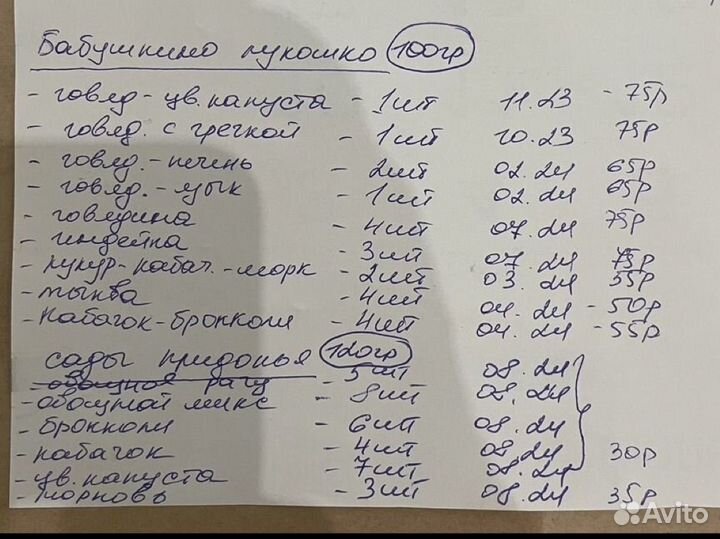 Бабушкино лукошко 100гр
- говяд-цв.капуста - 1шт 11.23 - 75р
- говяд. с гречкой - 1шт 10.23 75р
- говяд.-печень - 2шт 02.24 65р
- говяд.-язык - 1шт 02.24 65р
- говядина - 4шт 07.24 75р
- индейка - 3шт 07.24 75р
- кукур-кабач.-морк - 2шт 03.24 55р
- тыква - 4шт 04.24 - 50р
- кабачок-брокколи - 4шт 04.24 - 55р
сады придонья 120гр
- овощное рагу - 5шт 08.24
- овощной микс - 8шт 08.24
- брокколи - 6шт 08.24
- кабачок - 4шт 08.24 30р
- цв.капуста - 7шт 08.24
- морковь - 3шт 08.24 35р
Avito